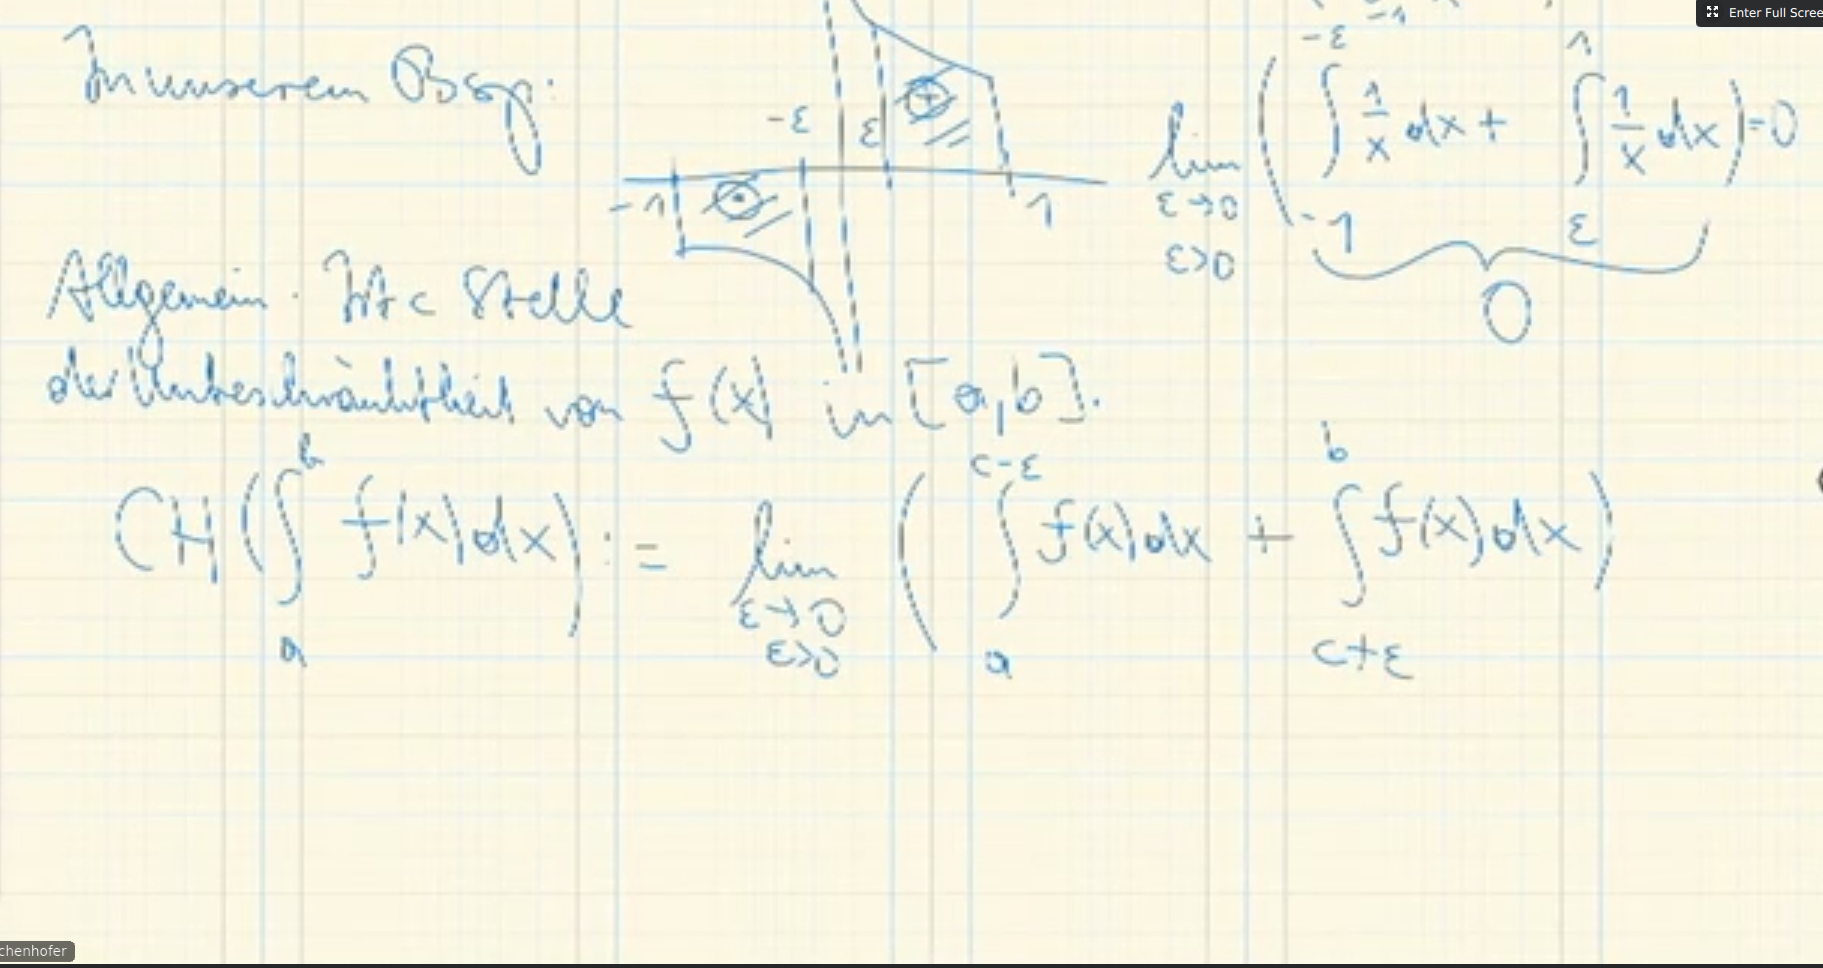 Enter Full Scree
In unserem Bsp:
-ε
ε
-1
1
lim ε→0 ε>0 ( ∫_{-1}^{-ε} 1/x dx + ∫_{ε}^{1} 1/x dx ) = 0
0
Allgemein. Ist c Stelle
der Unbeschränktheit von f(x) in [a,b].
CH ( ∫_a^b f(x) dx ) := lim ε→0 ε>0 ( ∫_a^{c-ε} f(x) dx + ∫_{c+ε}^b f(x) dx )
chenhofer